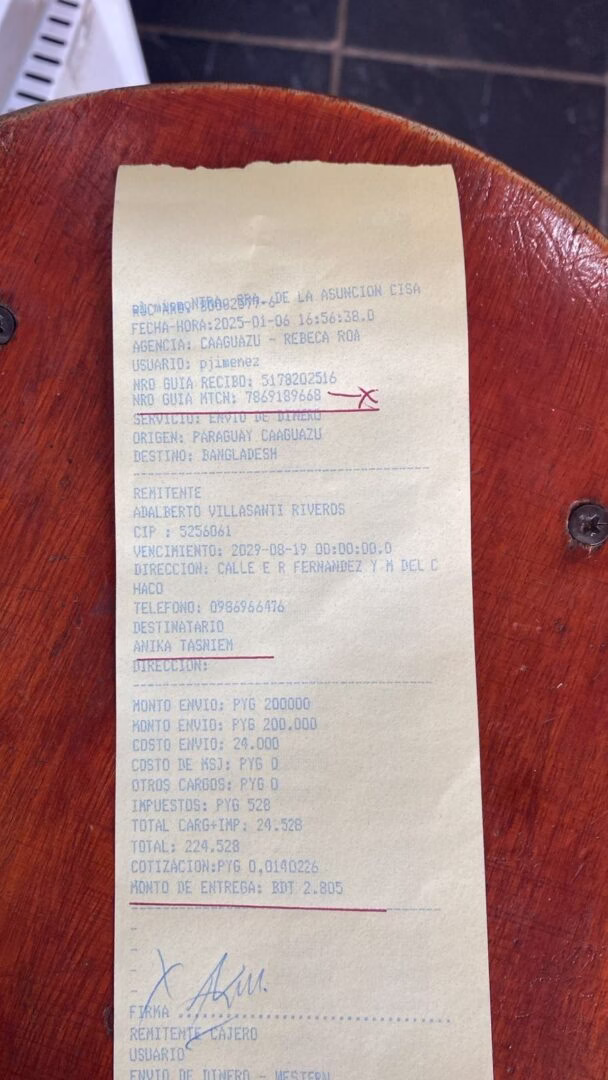 NTRA. SRA. DE LA ASUNCION CISA
FECHA-HORA:2025-01-06 16:56:38.0
AGENCIA: CAAGUAZU - REBECA ROA
USUARIO: pjimenez
NRO GUIA RECIBO: 5178202516
NRO GUIA MTCN: 7869189668
SERVICIO: ENVIO DE DINERO
ORIGEN: PARAGUAY CAAGUAZU
DESTINO: BANGLADESH
REMITENTE
ADALBERTO VILLASANTI RIVEROS
CIP : 5256061
VENCIMIENTO: 2029-08-19 00:00:00.0
DIRECCION: CALLE E R FERNANDEZ Y M DEL C
HACO
TELEFONO: 0986966476
DESTINATARIO
ANIKA TASNIEM
DIRECCION:
MONTO ENVIO: PYG 200000
MONTO ENVIO: PYG 200.000
COSTO ENVIO: 24.000
COSTO DE MSJ: PYG 0
OTROS CARGOS: PYG 0
IMPUESTOS: PYG 528
TOTAL CARG+IMP: 24.528
TOTAL: 224.528
COTIZACION:PYG 0,0140226
MONTO DE ENTREGA: BDT 2.805
FIRMA
REMITENTE CAJERO
USUARIO
ENVIO DE DINERO - WESTERN